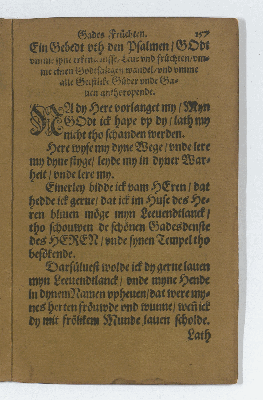 Gades Früchten. 157
Ein Gebedt vth den Psalmen / GOdt
vmme syne erkentenisse, Leue vnd früchten / vm-
me einen Godtsaligen wandel / vnd vmme
alle Geistlike Güder vnde Ga-
uen anthoropende.
NA dy Here vorlanget my / Myn
GOdt ick hape vp dy / lath my
nicht tho schanden werden.
Here wyse my dyne Wege / vnde lere
my dyne styge / leyde my in dyner War-
heit / vnde lere my.
Einerley bidde ick vam HEren / dat
hedde ick gerne / dat ick im Huse des He-
ren bliuen möge myn Leeuendtlanck /
tho schouwen de schönen Gadesdenste
des HEREN / vnde synen Tempel tho
besökende.
Darsüluest wolde ick dy gerne lauen
myn Leeuendtlanck / vnde myne Hende
in dynem Namen vpheuen / dat were my-
nes herten fröuwde vnd wunne / weñ ick
dy mit frölikem Munde lauen scholde.
Lath